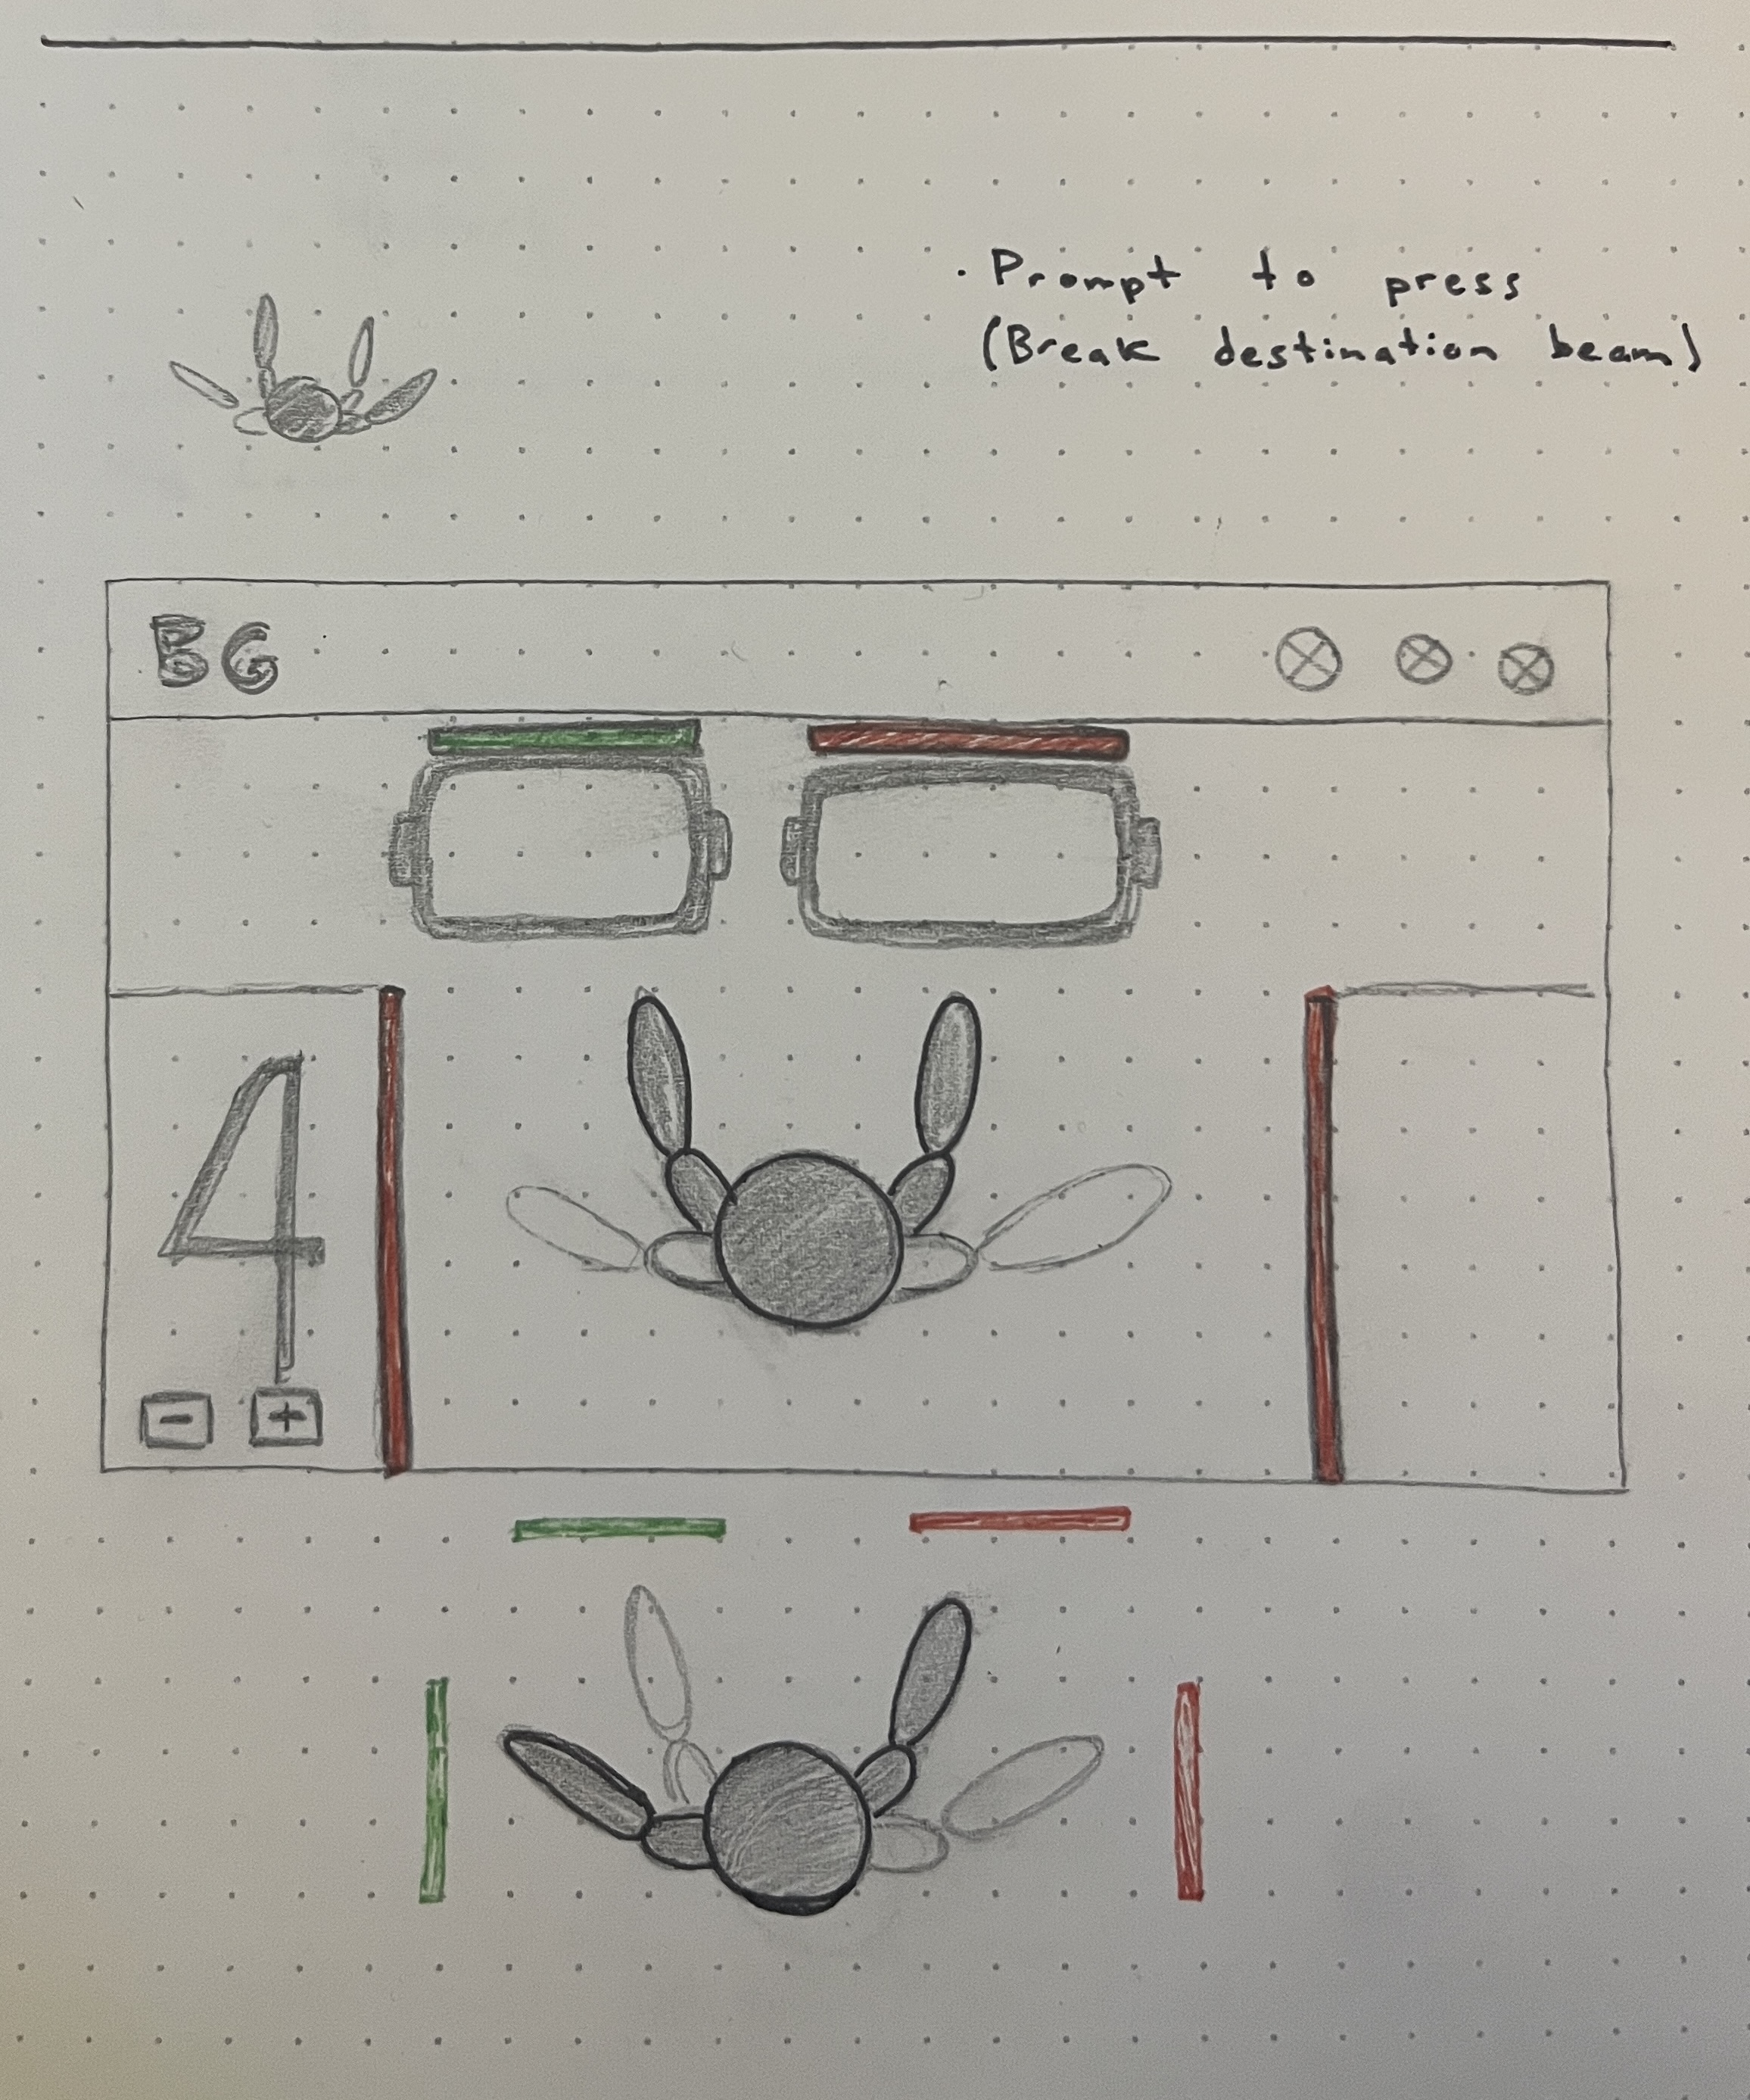 · Prompt to press
(Break destination beam)
BG
4
- +